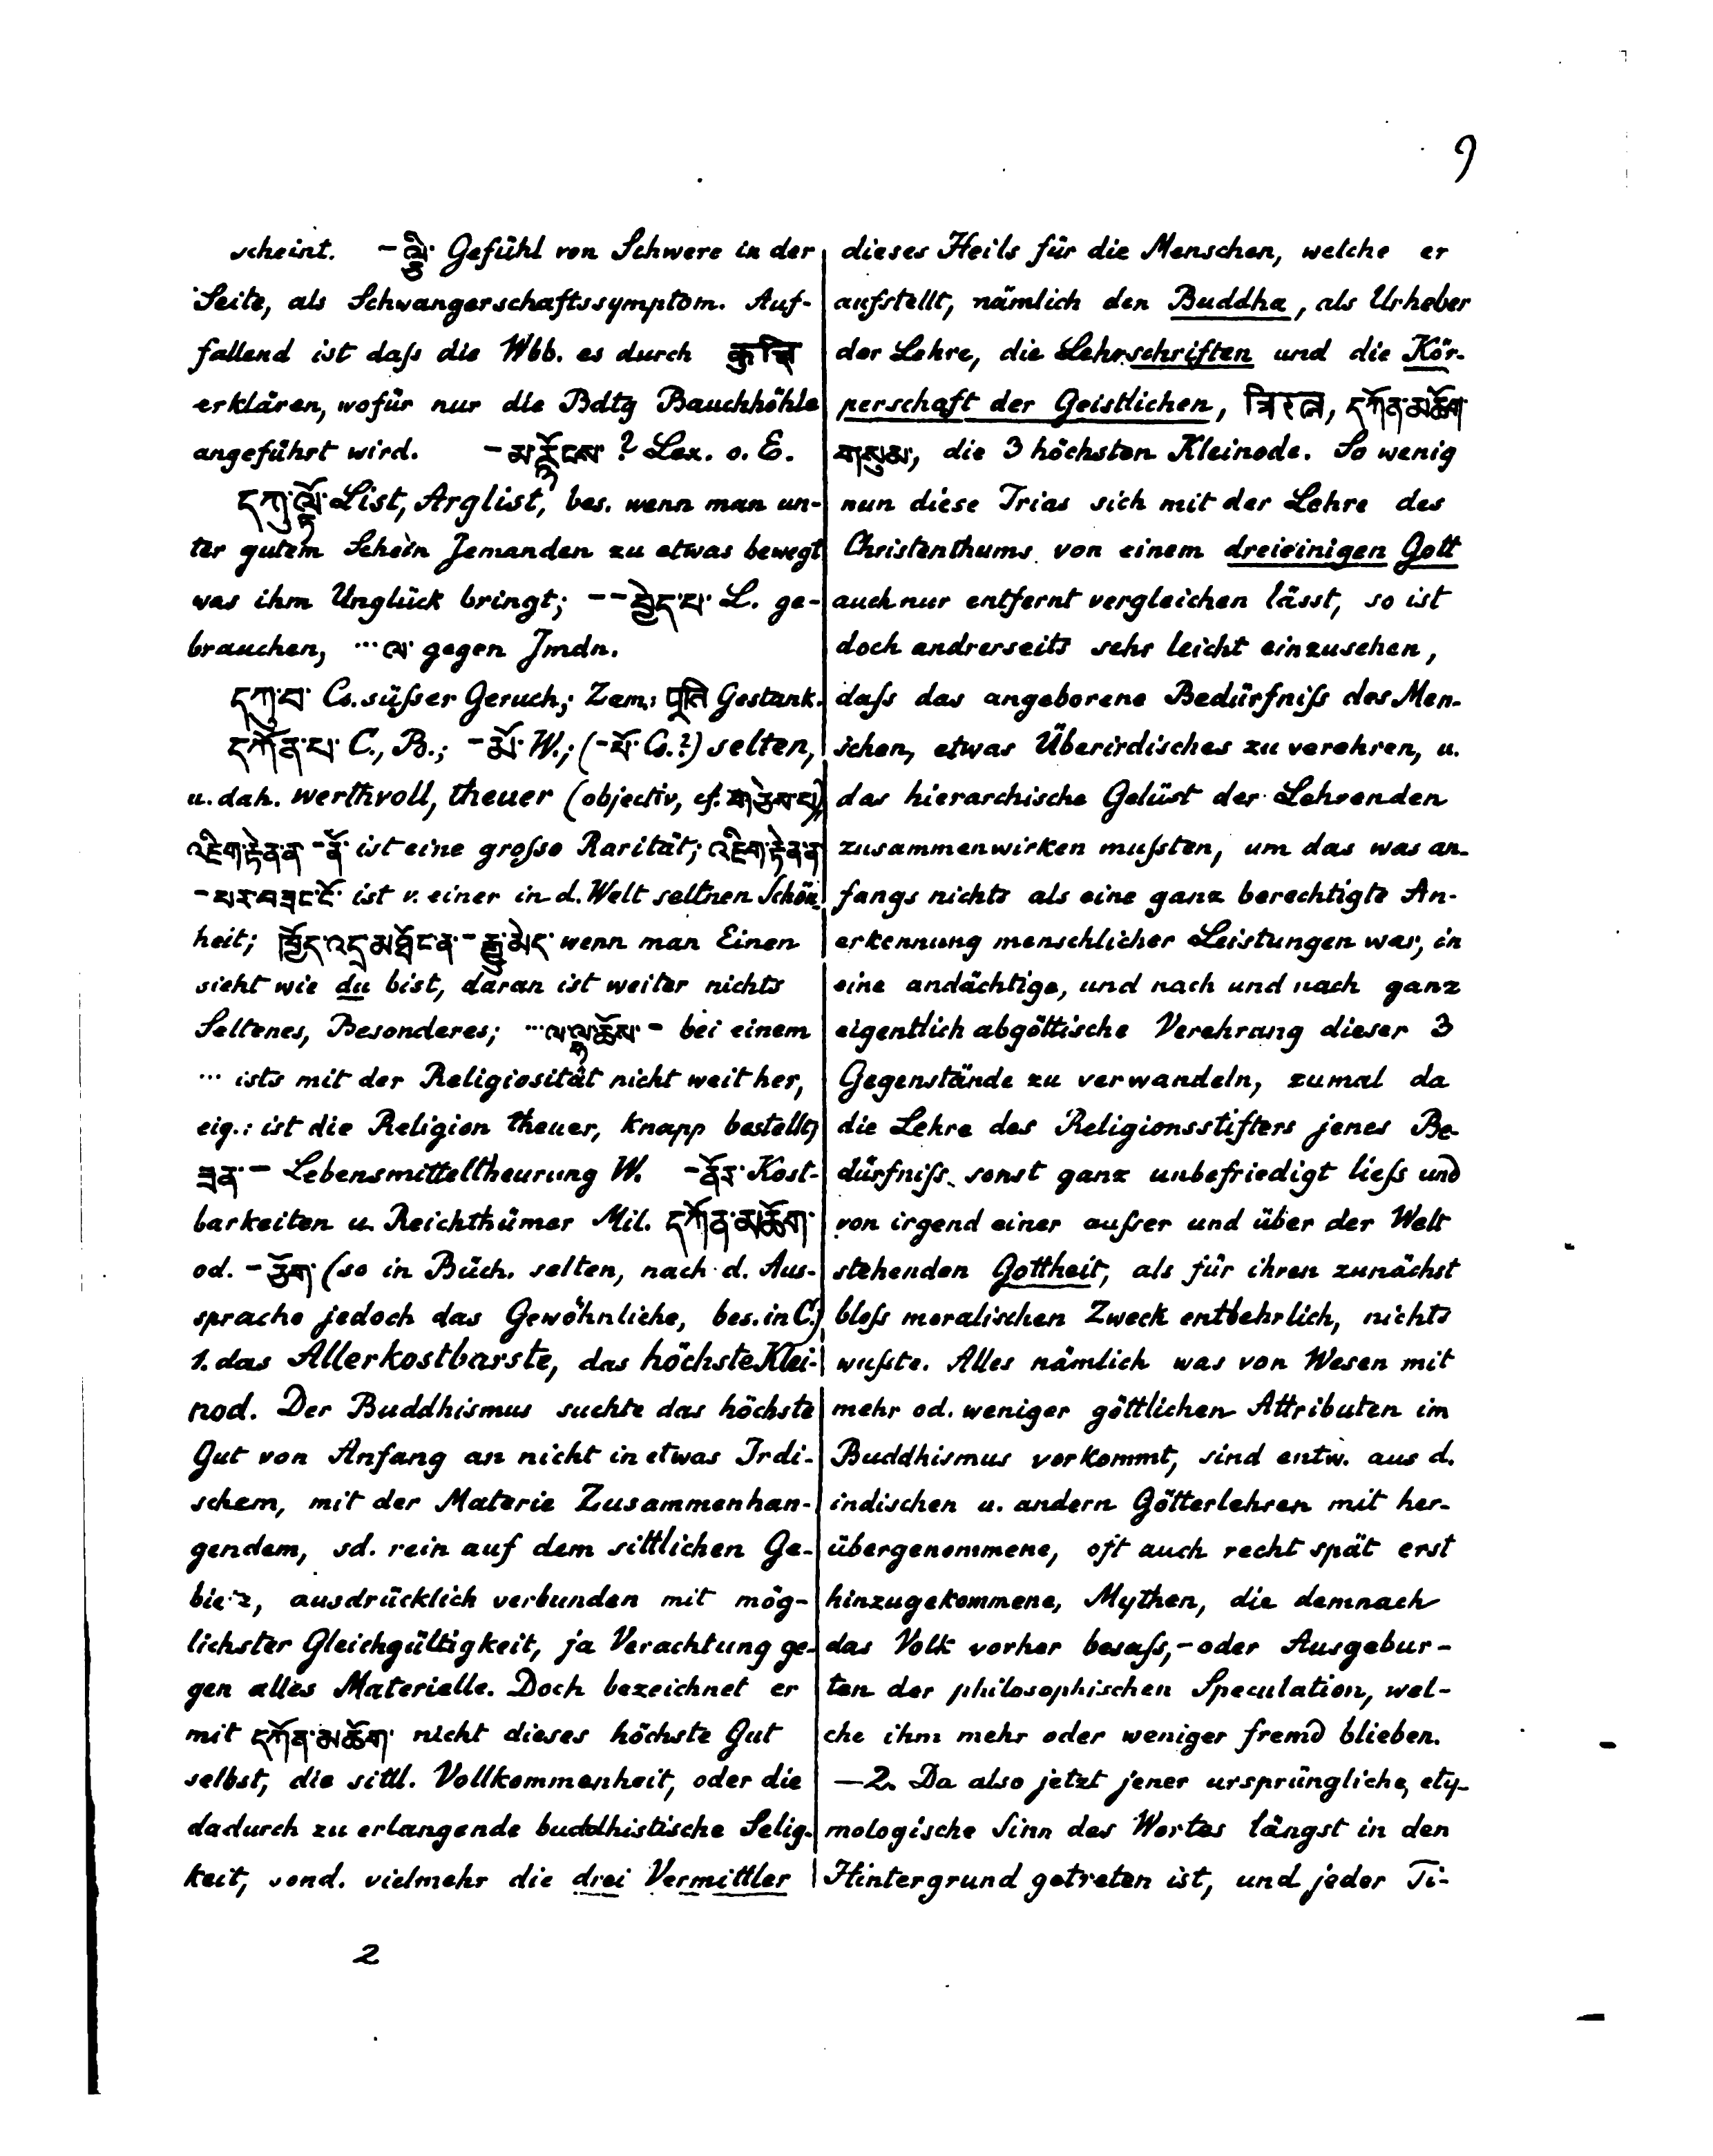 9
scheint. – ལྕི་ Gefühl von Schwere in der
Seite, als Schwangerschaftssymptom. Auf-
fallend ist daſs die Wbb. es durch कुक्षि
erklären, wofür nur die Bdtg Bauchhöhle
angeführt wird. – མརྙོངས་ ? Lex. o. E.
དཀུ་ལྟོ་ List, Arglist, bes. wenn man un-
ter gutem Schein Jemanden zu etwas bewegt
was ihm Unglück bringt; – – བྱེད་པ་ L. ge-
brauchen, ... ལ་ gegen Jmdn.
དཀུ་བ་ Cs. süſser Geruch; Zam.: पूति Gestank.
དཀོན་པ་ C., B.; – མོ་ W.; (– པོ་ Cs.?) selten,
u. dah. werthvoll, theuer (objectiv, cf. གཅེས་པ)
འཇིག་རྟེན་ན – ནོ་ ist eine groſse Rarität; འཇིག་རྟེན་ན
– པར་བཟང་ངོ་ ist v. einer in d. Welt seltnen Schön-
heit; ཁྱོད་འདྲ་མཐོང་ན་ – རྒྱུ་མེད་ wenn man Einen
sieht wie du bist, daran ist weiter nichts
Seltenes, Besonderes; ... ལ་ལྟ་ཆོས་ – bei einem
... ists mit der Religiosität nicht weit her,
eig.: ist die Religion theuer, knapp bestellt;
ཟན་ – Lebensmitteltheurung W. – ནོར་ Kost-
barkeiten u. Reichthümer Mil. དཀོན་མཆོག་
od. – ཅོག་ (so in Büch. selten, nach d. Aus-
sprache jedoch das Gewöhnliche, bes. in C.)
1. das Allerkostbarste, das höchste Klei-
nod. Der Buddhismus suchte das höchste
Gut von Anfang an nicht in etwas Irdi-
schem, mit der Materie Zusammenhan-
gendem, sd. rein auf dem sittlichen Ge-
biete, ausdrücklich verbunden mit mög-
lichster Gleichgültigkeit, ja Verachtung ge-
gen alles Materielle. Doch bezeichnet er
mit དཀོན་མཆོག་ nicht dieses höchste Gut
selbst, die sittl. Vollkommenheit, oder die
dadurch zu erlangende buddhistische Selig-
keit, sond. vielmehr die drei Vermittler
2
dieses Heils für die Menschen, welche er
aufstellt, nämlich den Buddha, als Urheber
der Lehre, die Lehrschriften und die Kör-
perschaft der Geistlichen, त्रिरत्न, དཀོན་མཆོག་
གསུམ་, die 3 höchsten Kleinode. So wenig
nun diese Trias sich mit der Lehre des
Christenthums von einem dreieinigen Gott
auch nur entfernt vergleichen lässt, so ist
doch andrerseits sehr leicht einzusehen,
daſs das angeborene Bedürfniſs des Men-
schen, etwas Überirdisches zu verehren, u.
das hierarchische Gelüst der Lehrenden
zusammenwirken muſsten, um das was an-
fangs nichts als eine ganz berechtigte An-
erkennung menschlicher Leistungen war, in
eine andächtige, und nach und nach ganz
eigentlich abgöttische Verehrung dieser 3
Gegenstände zu verwandeln, zumal da
die Lehre des Religionsstifters jenes Be-
dürfniſs sonst ganz unbefriedigt lieſs und
von irgend einer auſser und über der Welt
stehenden Gottheit, als für ihren zunächst
bloſs moralischen Zweck entbehrlich, nichts
wuſste. Alles nämlich was von Wesen mit
mehr od. weniger göttlichen Attributen im
Buddhismus vorkommt, sind entw. aus d.
indischen u. andern Götterlehren mit her-
übergenommene, oft auch recht spät erst
hinzugekommene, Mythen, die demnach
das Volk vorher besaſs, – oder Ausgebur-
ten der philosophischen Speculation, wel-
che ihm mehr oder weniger fremd blieben.
— 2. Da also jetzt jener ursprüngliche, ety-
mologische Sinn des Wortes längst in den
Hintergrund getreten ist, und jeder Ti-